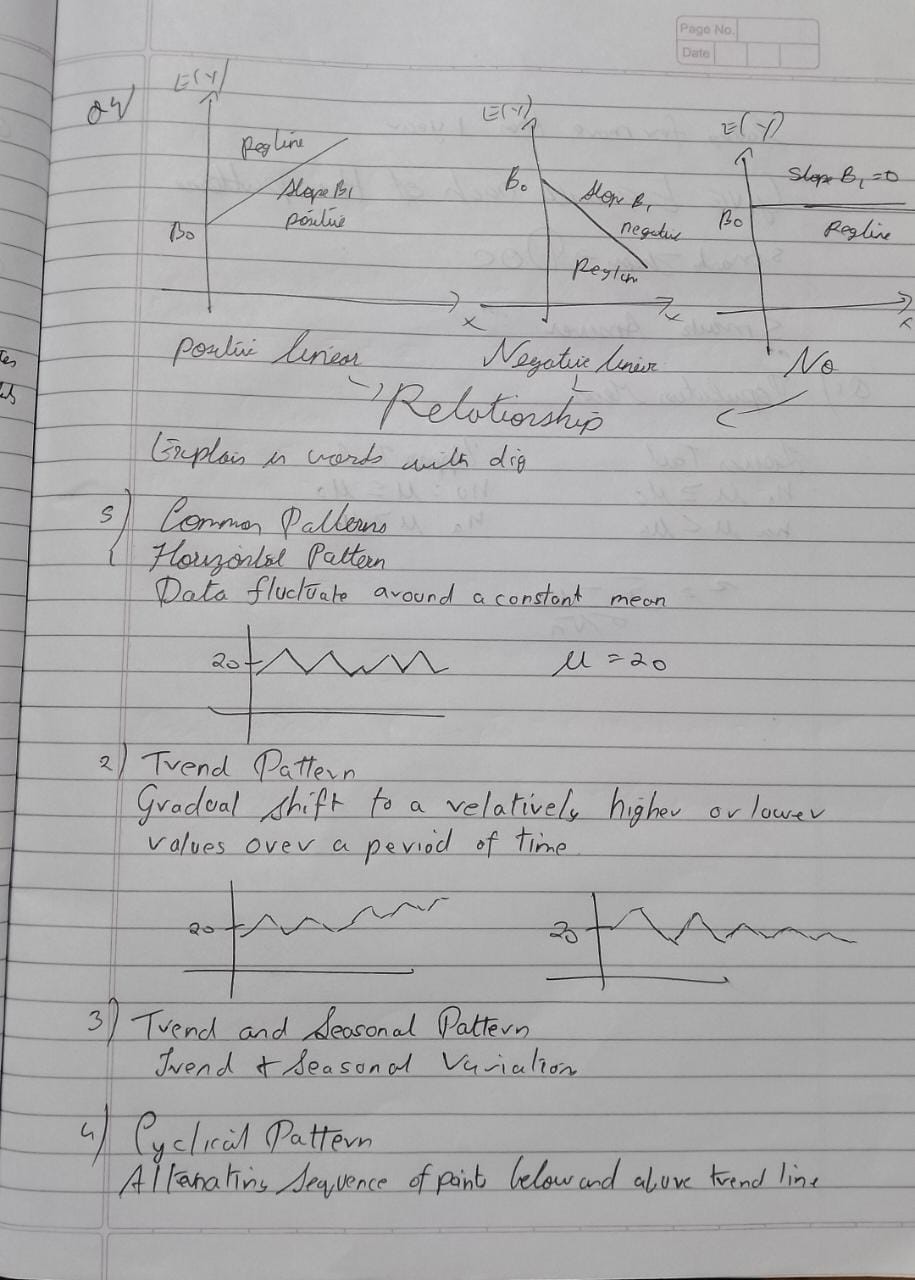 Page No.
Date
Q4)
E(Y)
Reg line
Slope B₁
positive
B₀
x
E(Y)
B₀
Slope B₁
negative
Regline
x
E(Y)
Slope B₁ = 0
B₀
Regline
x
Positive linear
Negative linear
No
Relationship
Explain in words with dig
5)
Common Patterns
Horizontal Pattern
Data fluctuate around a constant mean
20
μ = 20
2) Trend Pattern
Gradual shift to a relatively higher or lower
values over a period of time
20
20
3) Trend and Seasonal Pattern
Trend + Seasonal Variation
4) Cyclical Pattern
Alternating Sequence of point below and above trend line